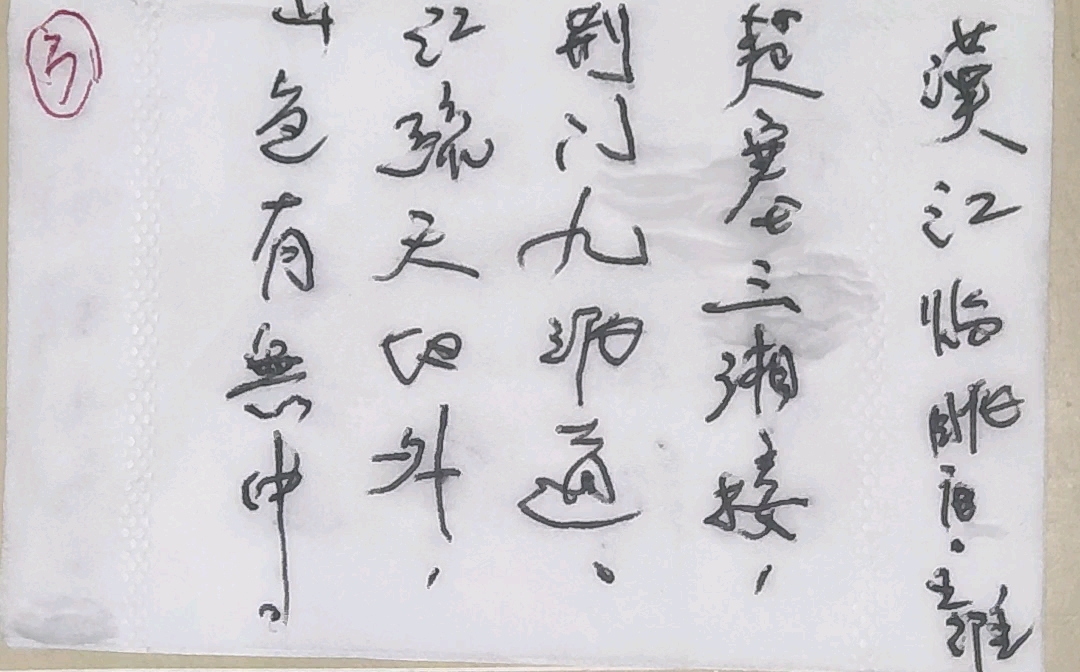 漢江临眺唐·王維
楚塞三湘接，
荆门九派通。
江流天地外，
山色有無中。